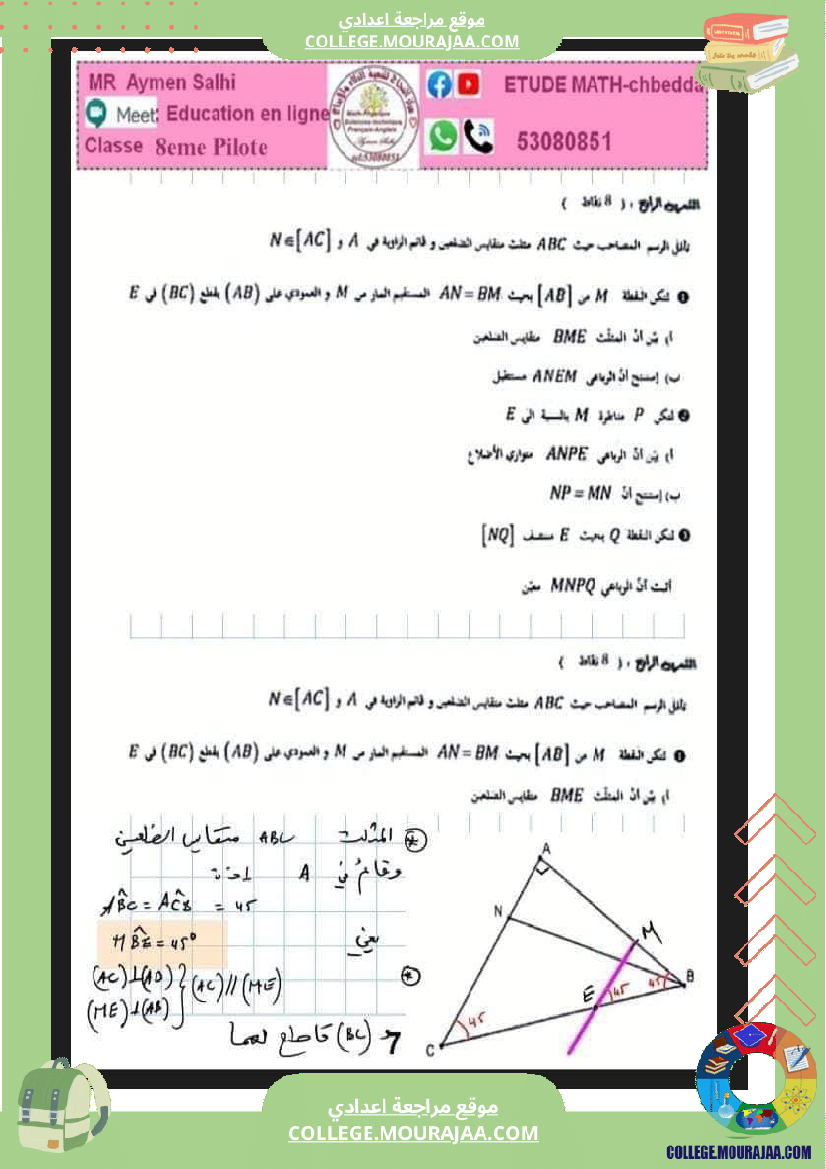 موقع مراجعة اعدادي
COLLEGE.MOURAJAA.COM
MR Aymen Salhi
ETUDE MATH-chbedda
Meet: Education en ligne
Classe 8eme Pilote
53080851
التمرين الرابع : ( 8 نقاط )
تأمل الرسم المصاحب حيث ABC مثلث متقايس الضلعين و قائم الزاوية في A و N∈[AC]
❶ لتكن النقطة M من [AB] بحيث AN = BM المستقيم المار من M و العمودي على (AB) يقطع (BC) في E
أ) بيّن أنّ المثلّث BME متقايس الضلعين
ب) إستنتج أنّ الرباعي ANEM مستطيل
❷ لتكن P مناظرة M بالنسبة الى E
أ) بيّن أنّ الرباعي ANPE متوازي الأضلاع
ب) إستنتج أنّ NP = MN
❸ لتكن النقطة Q بحيث E منتصف [NQ]
أثبت أنّ الرباعي MNPQ معيّن
التمرين الرابع : ( 8 نقاط )
تأمل الرسم المصاحب حيث ABC مثلث متقايس الضلعين و قائم الزاوية في A و N∈[AC]
❶ لتكن النقطة M من [AB] بحيث AN = BM المستقيم المار من M و العمودي على (AB) يقطع (BC) في E
أ) بيّن أنّ المثلّث BME متقايس الضلعين
المثلث ABC متقايس الضلعين
وقائم في A إذن
AB̂C = AĈB = 45
يعني
MB̂E = 45°
(AC)⊥(AB)
(ME)⊥(AB)
(AC)//(ME)
(BC) قاطع لهما
A
N
M
B
E
45
45
45
C
موقع مراجعة اعدادي
COLLEGE.MOURAJAA.COM
COLLEGE.MOURAJAA.COM